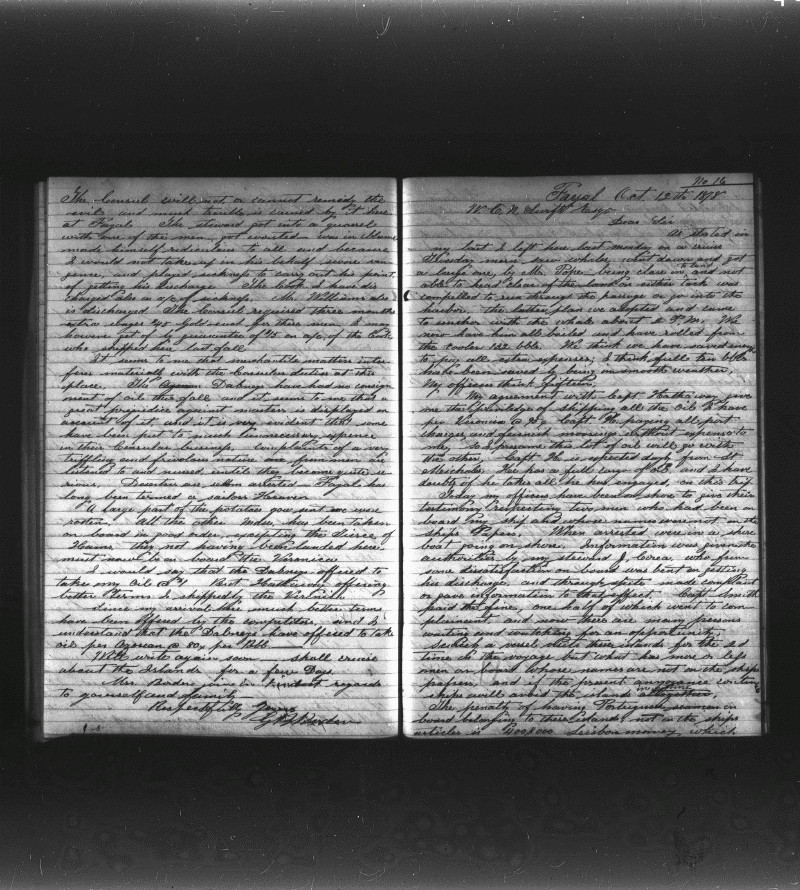 The Consul will not or cannot remedy the
evil, and much trouble is caused by it here
at Fayal. The steward got into a quarrel
with one of the men, got worsted
made himself rediculous to all and because
I would not take up on his behalf swore ven
gence, and played sickness to carry out his point,
of getting his discharge. The Cook I have dis
charged also on a/c of sickness. Mr. Williams also
is discharged. The Consul required three months
extra wages gold for these men. I
however got a guarantee of on a/c of the Cook
who shipped here last fall.
It seems to me that merchantile matters inter
feres materially with the Consular duties at this
place. The Dabneys have had no consign
ment of oil this fall and it seems to me that a
great prejudice against masters is displayed on
account of it, and it is very evident that some
have been put to much unnecessary expense
in their Consular business, complaints of a very
trifling and frivolous nature are
listened to and nursed until they become quite se
rious. Deserters are seldom arrested & Fayal has
long been termed a sailors Heaven
A large part of the potatoes you sent me were
rotten. All the other Mdse, has been taken
on board in good order, excepting the
of Hawser they not having been landed here
must now be on board the Veronica
I would say that the Dabneys offered to
take my Oil But Hathaway offering
better terms I shipped by the Veronica
Since my arrival here much better terms
have been offered by the competitors, and I
understand that the Dabneys have offered to take
oil per Azorean @ 80 per Bbl.
Will write again soon shall cruise
about the Islands for a few Days
Mrs. Borden joins in kindest regards
to yourself and family
Respectfully Yours
Borden
No 16
Fayal Oct 12th 1878
W. C. N. Swift Esqr
Dear Sir
As stated in
my last I left here last Monday on a cruise
Thursday morn saw whales, went down and got
a large one, by Mr. Pope, being close in to land and not
able to head clear of the land on either tack was
compelled to run through the passage or go into the
harbor. The latter plan we adopted and came
to anchor with the whale about 2 P.M. We
now have him all boiled and have rolled from
the cooler 132 bbls. We think we have saved enough
to pay all extra expenses; I think full ten bbls
has been saved by being in smooth weather,
My officers think fifteen.
My agreement with Capt. Hathaway give
me the privilege of shipping all the Oil I have
per Veronica & Capt. H. paying all port
charges and expense to
ship. I presume this lot of oil will go with
the other. Capt H. is expected daily from St
Michaels. He has a full cargo of oil and I have
doubts if he takes all he has engaged, on this trip
Today my officers have been on shore to give their
testimony respecting two men who had been on
board the ship and whose names were not on the
ships Papers. When arrested were in a shore
boat going on shore. Information was given the
authorities by my steward J. Correa who from
some dissatisfaction on board was bent on getting
his discharge, and through spite made complaint
or gave information to that effect. Capt. Smith
paid the fine, one half of which went to com
plainant and now there are many persons
waiting and watching for an opportunity.
Seldom a vessel visits these islands for the 2d
time in the voyage but what has one or more
men on board whose names are not on the ships
papers, and if the present annoyance continues
ships will avoid the islands in future
The penalty of having Portuguese seaman on
board belonging to these islands, not on the ships
articles is 400$000 Lisbon money, which